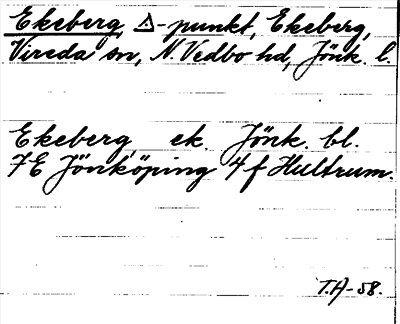 Ekeberg, △-punkt, Ekeberg,
Vireda sn, N. Vedbo hd, Jönk. l.
Ekeberg, ek. Jönk. bl.
7E Jönköping 4f Hultrum.
T.A-58.